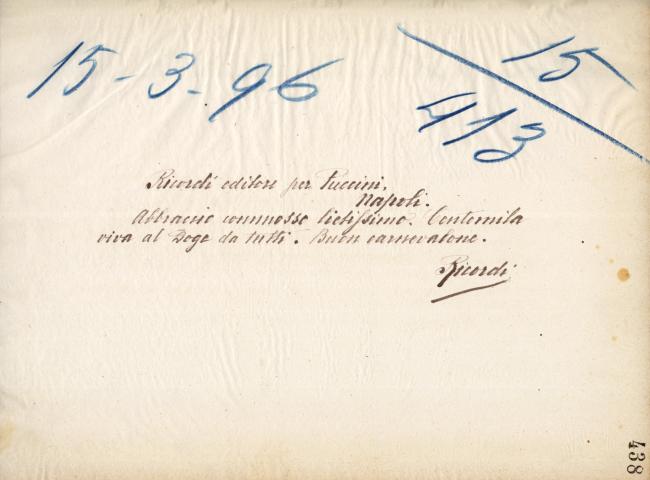 15-3-96
15
413
Ricordi editore per Puccini.
Napoli.
Abbraccio commosso lietissimo. Centomila
viva al Doge da tutti. Buon carnevalone.
Ricordi
438